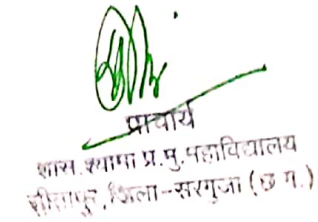 प्राचार्य
शास. श्यामा प्र. मु. महाविद्यालय
सीतापुर, जिला-सरगुजा (छ.ग.)